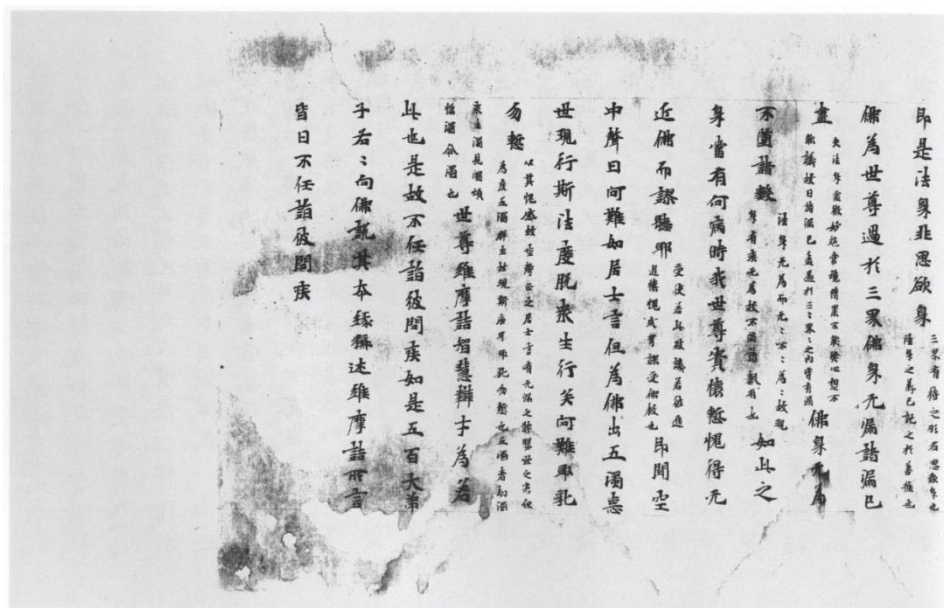 即是法身非思欲身
三界有待之形名思欲身也
法身之義已記之於善權也
佛為世尊過於三界佛身无漏諸漏已
盡
夫法身虛微妙絕常境情累不能染心想不
能議故曰諸漏已盡過於三々界々之內皆有漏
佛身无為
不墮諸數
法身无為而无々不々為々故現
身有疾无為故不墮諸數有也
如此之
身當有何病時我世尊實懷慙愧得无
近佛而謬聽耶
受使若此致譏若彼進
退懷愧或謂謬受佛教也
即聞空
中聲曰阿難如居士言但為佛出五濁惡
世現行斯法度脫衆生行矣阿難取乳
勿慙
以其愧惑故空聲正之居士言有无漏之體與世之患但
為度五濁群生故現斯疾耳取乳勿慙也五濁者劫濁
衆生濁見濁煩
惱濁命濁也
世尊維摩詰智慧辯才為若
此也是故不任詣彼問疾如是五百大弟
子各々向佛說其本緣稱述維摩詰所言
皆曰不任詣彼問疾